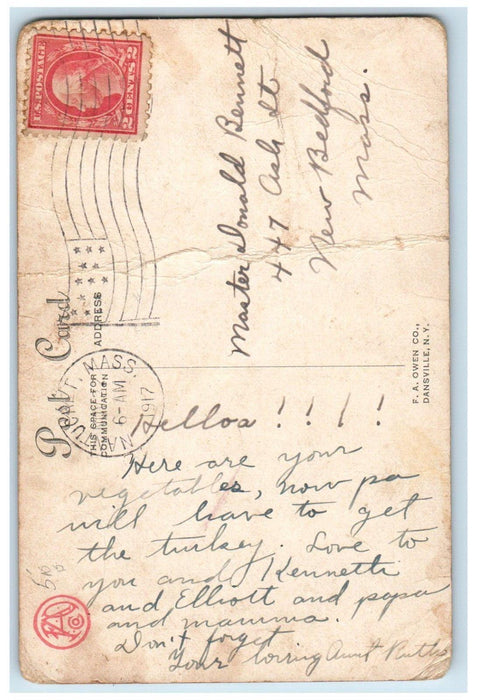 U.S. POSTAGE
2 CENTS 2
Post Card
THIS SPACE FOR
COMMUNICATION
ADDRESS
NANTUCKET, MASS.
6-AM
1917
Master Donald Bennett
447 Ash St
New Bedford
Mass.
F. A. OWEN CO.,
DANSVILLE, N.Y.
Helloa !!!!
Here are your
vegetables, now pa
will have to get
the turkey. Love to
you and Kenneth
and Elliott and papa
and mamma.
Don't forget
Your loving Aunt Ruth